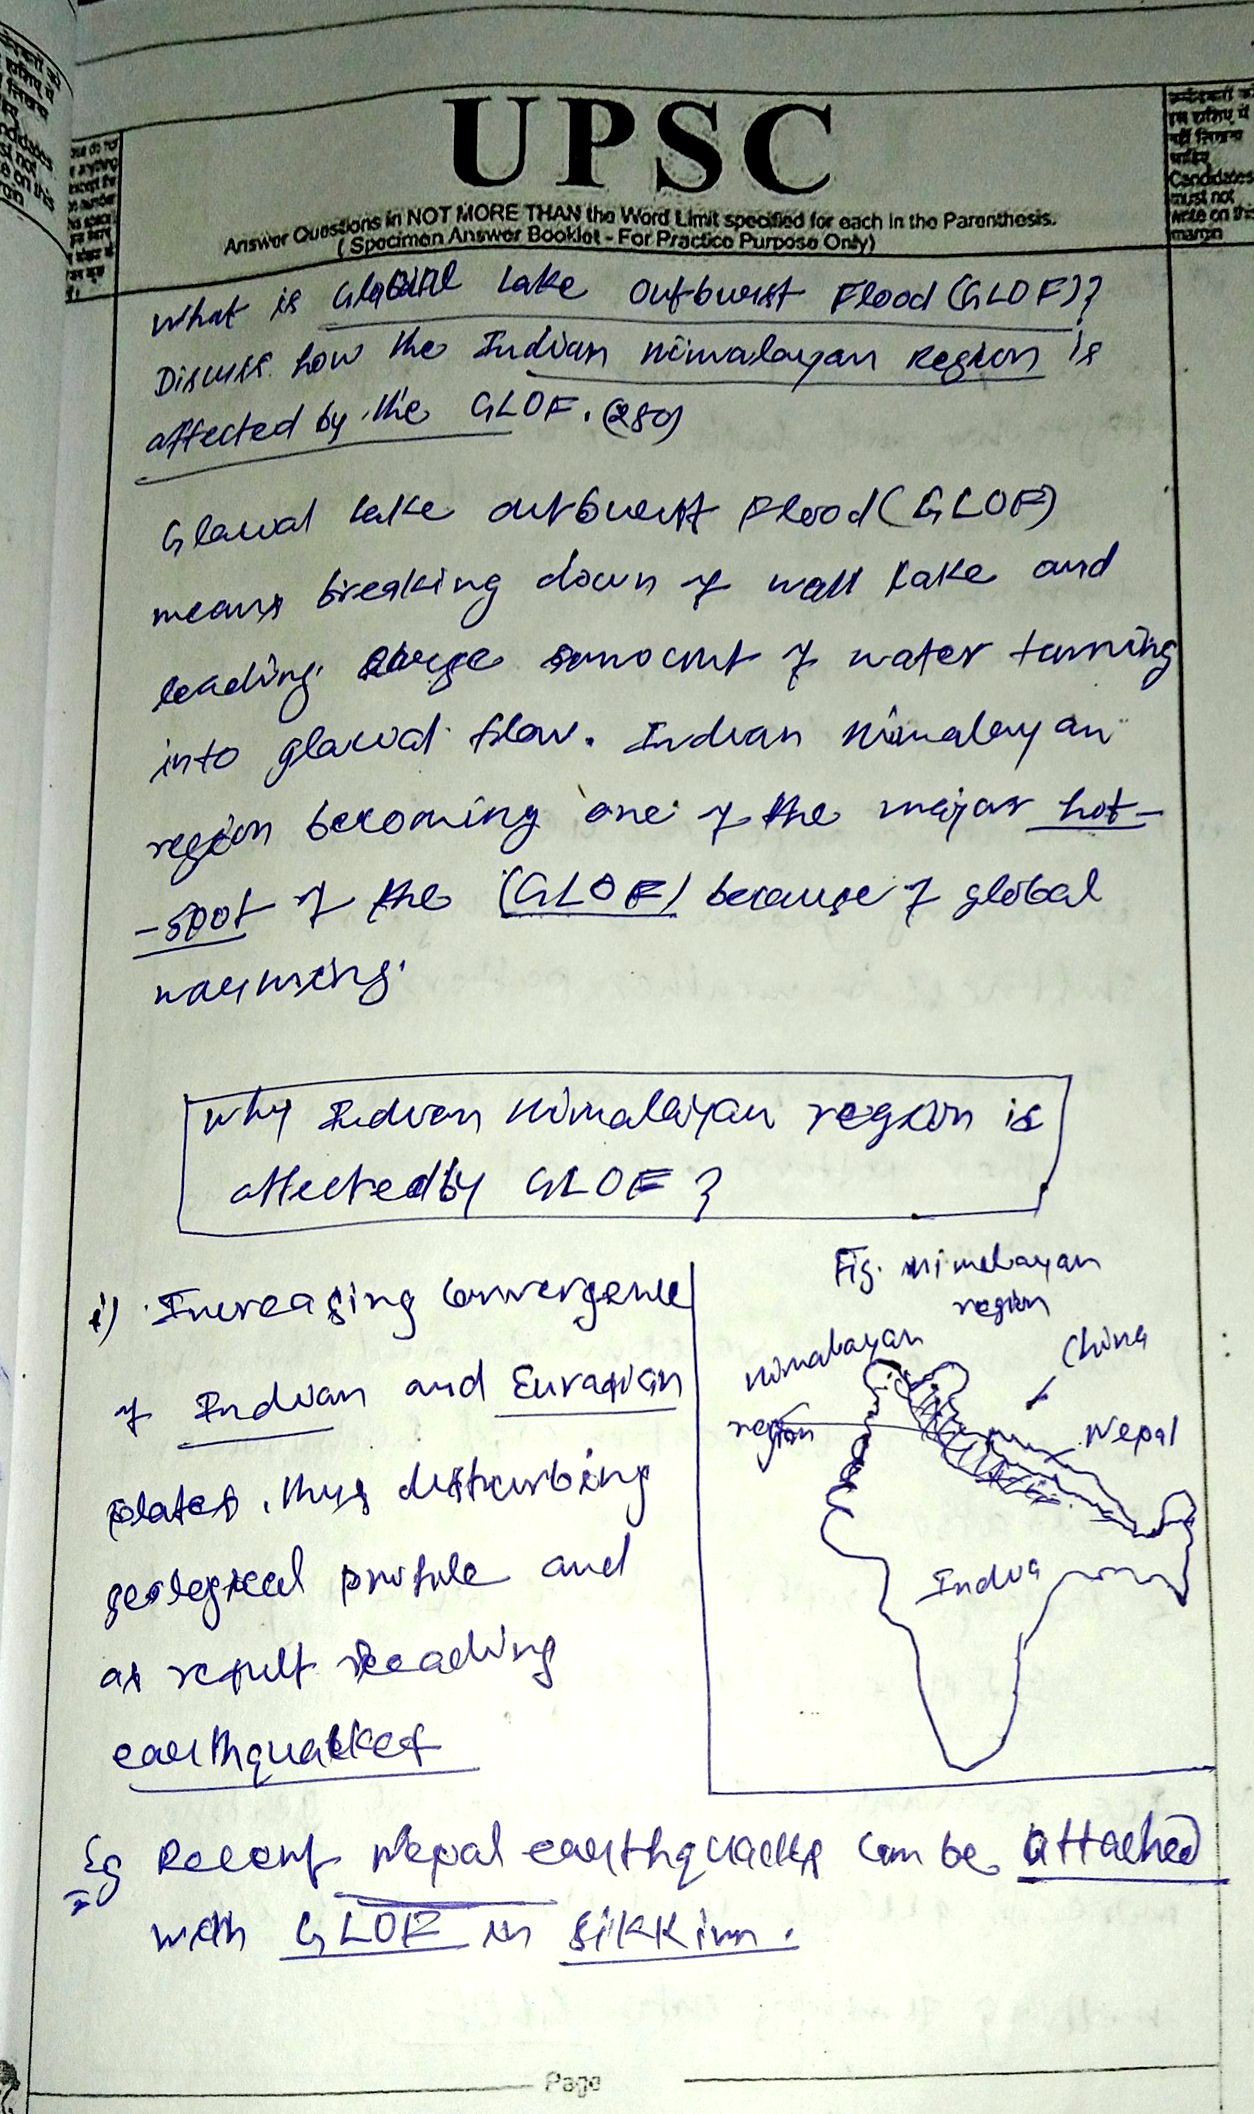 UPSC
Answer Questions in NOT MORE THAN the Word Limit specified for each in the Parenthesis.
(Specimen Answer Booklet - For Practice Purpose Only)
Candidates
must not
write on this
margin
What is Glacial Lake Outburst Flood (GLOF)?
Discuss how the Indian Himalayan Region is
affected by the GLOF. (250)
Glacial Lake outburst Flood (GLOF)
means breaking down of wall Lake and
leading large amount of water turning
into glacial flow. Indian Himalayan
region becoming one of the major hot-
-spot of the (GLOF) because of global
warming.
Why Indian Himalayan region is
affected by GLOF?
i) Increasing convergence
of Indian and Eurasian
plates, thus disturbing
geological profile and
as result leading
earthquakes
Fig. Himalayan
region
Himalayan
region
China
Nepal
India
Eg Recent Nepal earthquakes can be attached
with GLOF in Sikkim.
Page